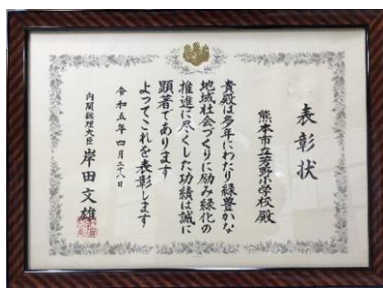 表彰状
熊本市立芳野小学校殿
貴殿は多年にわたり緑豊かな
地域社会づくりに励み緑化の
推進に尽くした功績は誠に
顕著であります
よってこれを表彰します
令和五年四月二十八日
内閣総理大臣 岸田文雄